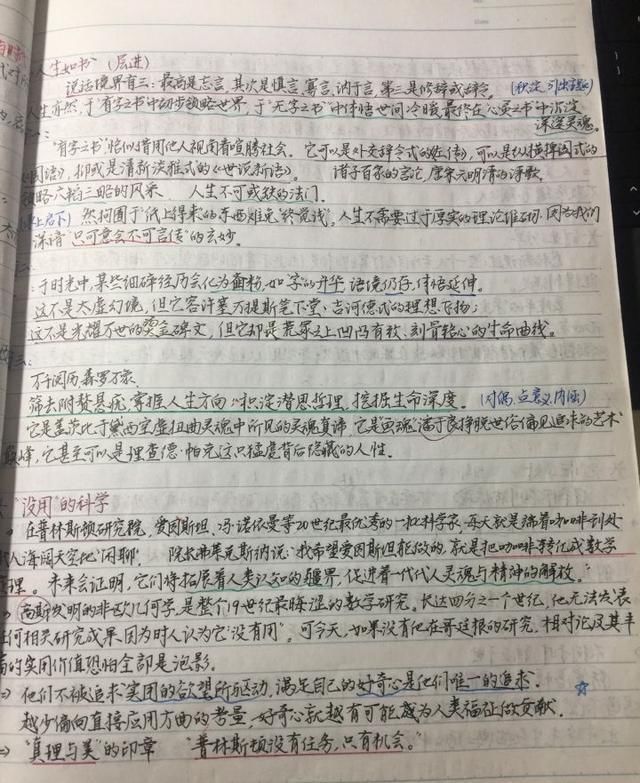 人生如书" (层进)
说话境界有三：最高是忘言，其次是慎言，寡言，讷于言，第三是修辞或辞令。
人生亦然，于"有字之书"中初步领略世界，于"无字之书"中体悟世间冷暖，最终在"心灵之书"中沉淀
深邃灵魂。
"有字之书"恰似借用他人视角看喧腾社会。它可以是外交辞令式的《左传》，可以是纵横捭阖式的
《国语》，抑或是清新淡雅式的《世说新语》。 诸子百家的言论，唐宋元明清的诗歌
领略六韬三略的风采 人生不可或缺的法门。
(承上启下) 然拘囿于"纸上得来的东西难免"终觉浅"，人生不需要过于厚实的理论维砌，因为我们
深谙"只可意会不可言传"的玄妙。
于时光中，某些细碎经历会化为面粉，如"字的升华"，语境仍存，体悟延伸。
这不是太虚幻境，但它容许塞万提斯笔下堂·吉诃德式的理想飞扬；
这不是光耀万世的奠金碑文，但它却是荒冢之上凹凸有致、刻骨铭心的生命曲线。
万千阅历森罗万象
筛去附赘悬疣，掌握人生方向，积淀潜思哲理，挖掘生命深度。 (对偶，点意义内涵)
它是盖茨比于黛西空虚扭曲灵魂中所见的灵魂真谛，它是"画魂"潘于良挣脱世俗偏见追求的艺术
巅峰，它甚至可以是理查德·帕克这只猛虎背后隐藏的人性。
"没用"的科学
在普林斯顿研究院，爱因斯坦、冯·诺依曼等20世纪最优秀的一批科学家，每天就是端着咖啡到处
找人海阔天空地"闲聊"， 院长弗莱克斯纳说："我希望爱因斯坦能做的，就是把咖啡转化成数学
定理。未来会证明，它们将拓展着人类认知的疆界，促进着一代代人灵魂与精神的解放。"
高斯发明的非欧几何学，是整个19世纪最晦涩的数学研究。长达四分之一个世纪，他无法发表
任何相关研究成果，因为时人认为它"没有用"。可今天，如果没有他在哥廷根的研究，相对论及其丰
富的实用价值恐怕全部是泡影。
他们不被追求实用的欲望所驱动，满足自己的好奇心是他们唯一的追求。
越少偏向直接应用方面的考量，好奇心就越有可能成为人类福祉做贡献。
→ "真理与美"的印章 "普林斯顿没有任务，只有机会。"